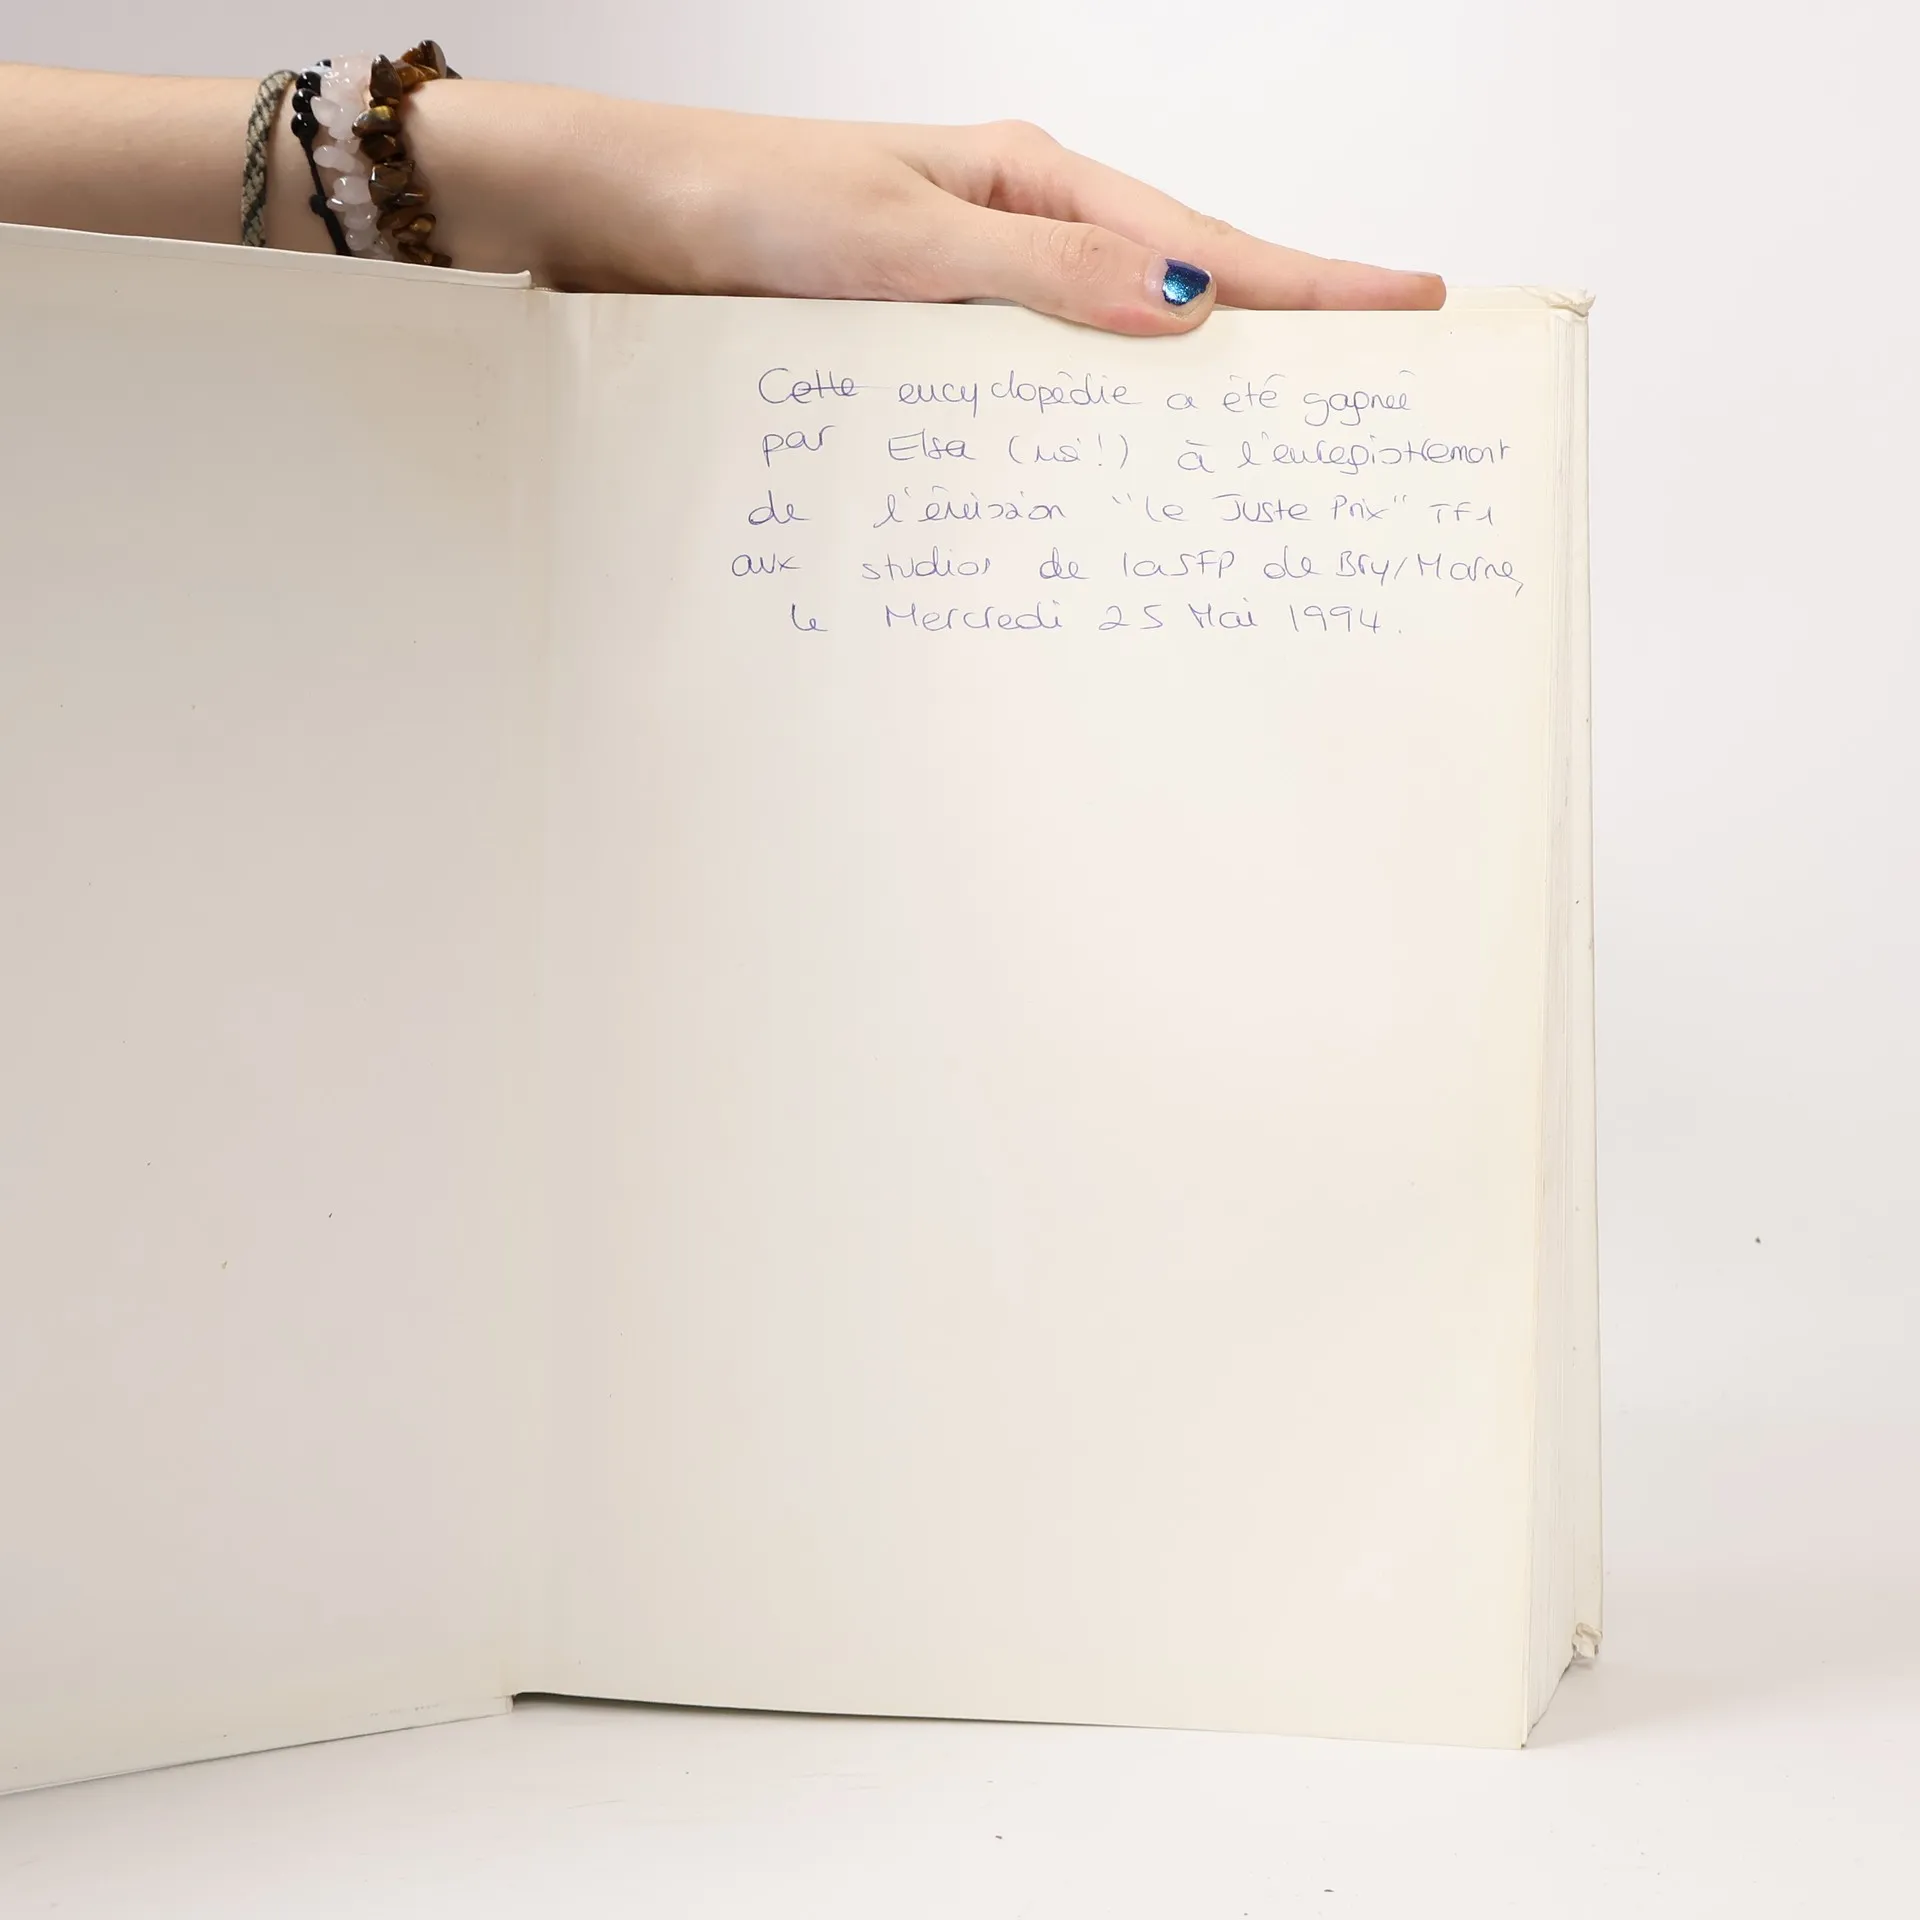 Cette encyclopédie a été gagnée
par Elsa (moi!) à l'enregistrement
de l'émission "Le Juste Prix" TF1
aux studios de la SFP de Bry/Marne,
le Mercredi 25 Mai 1994.